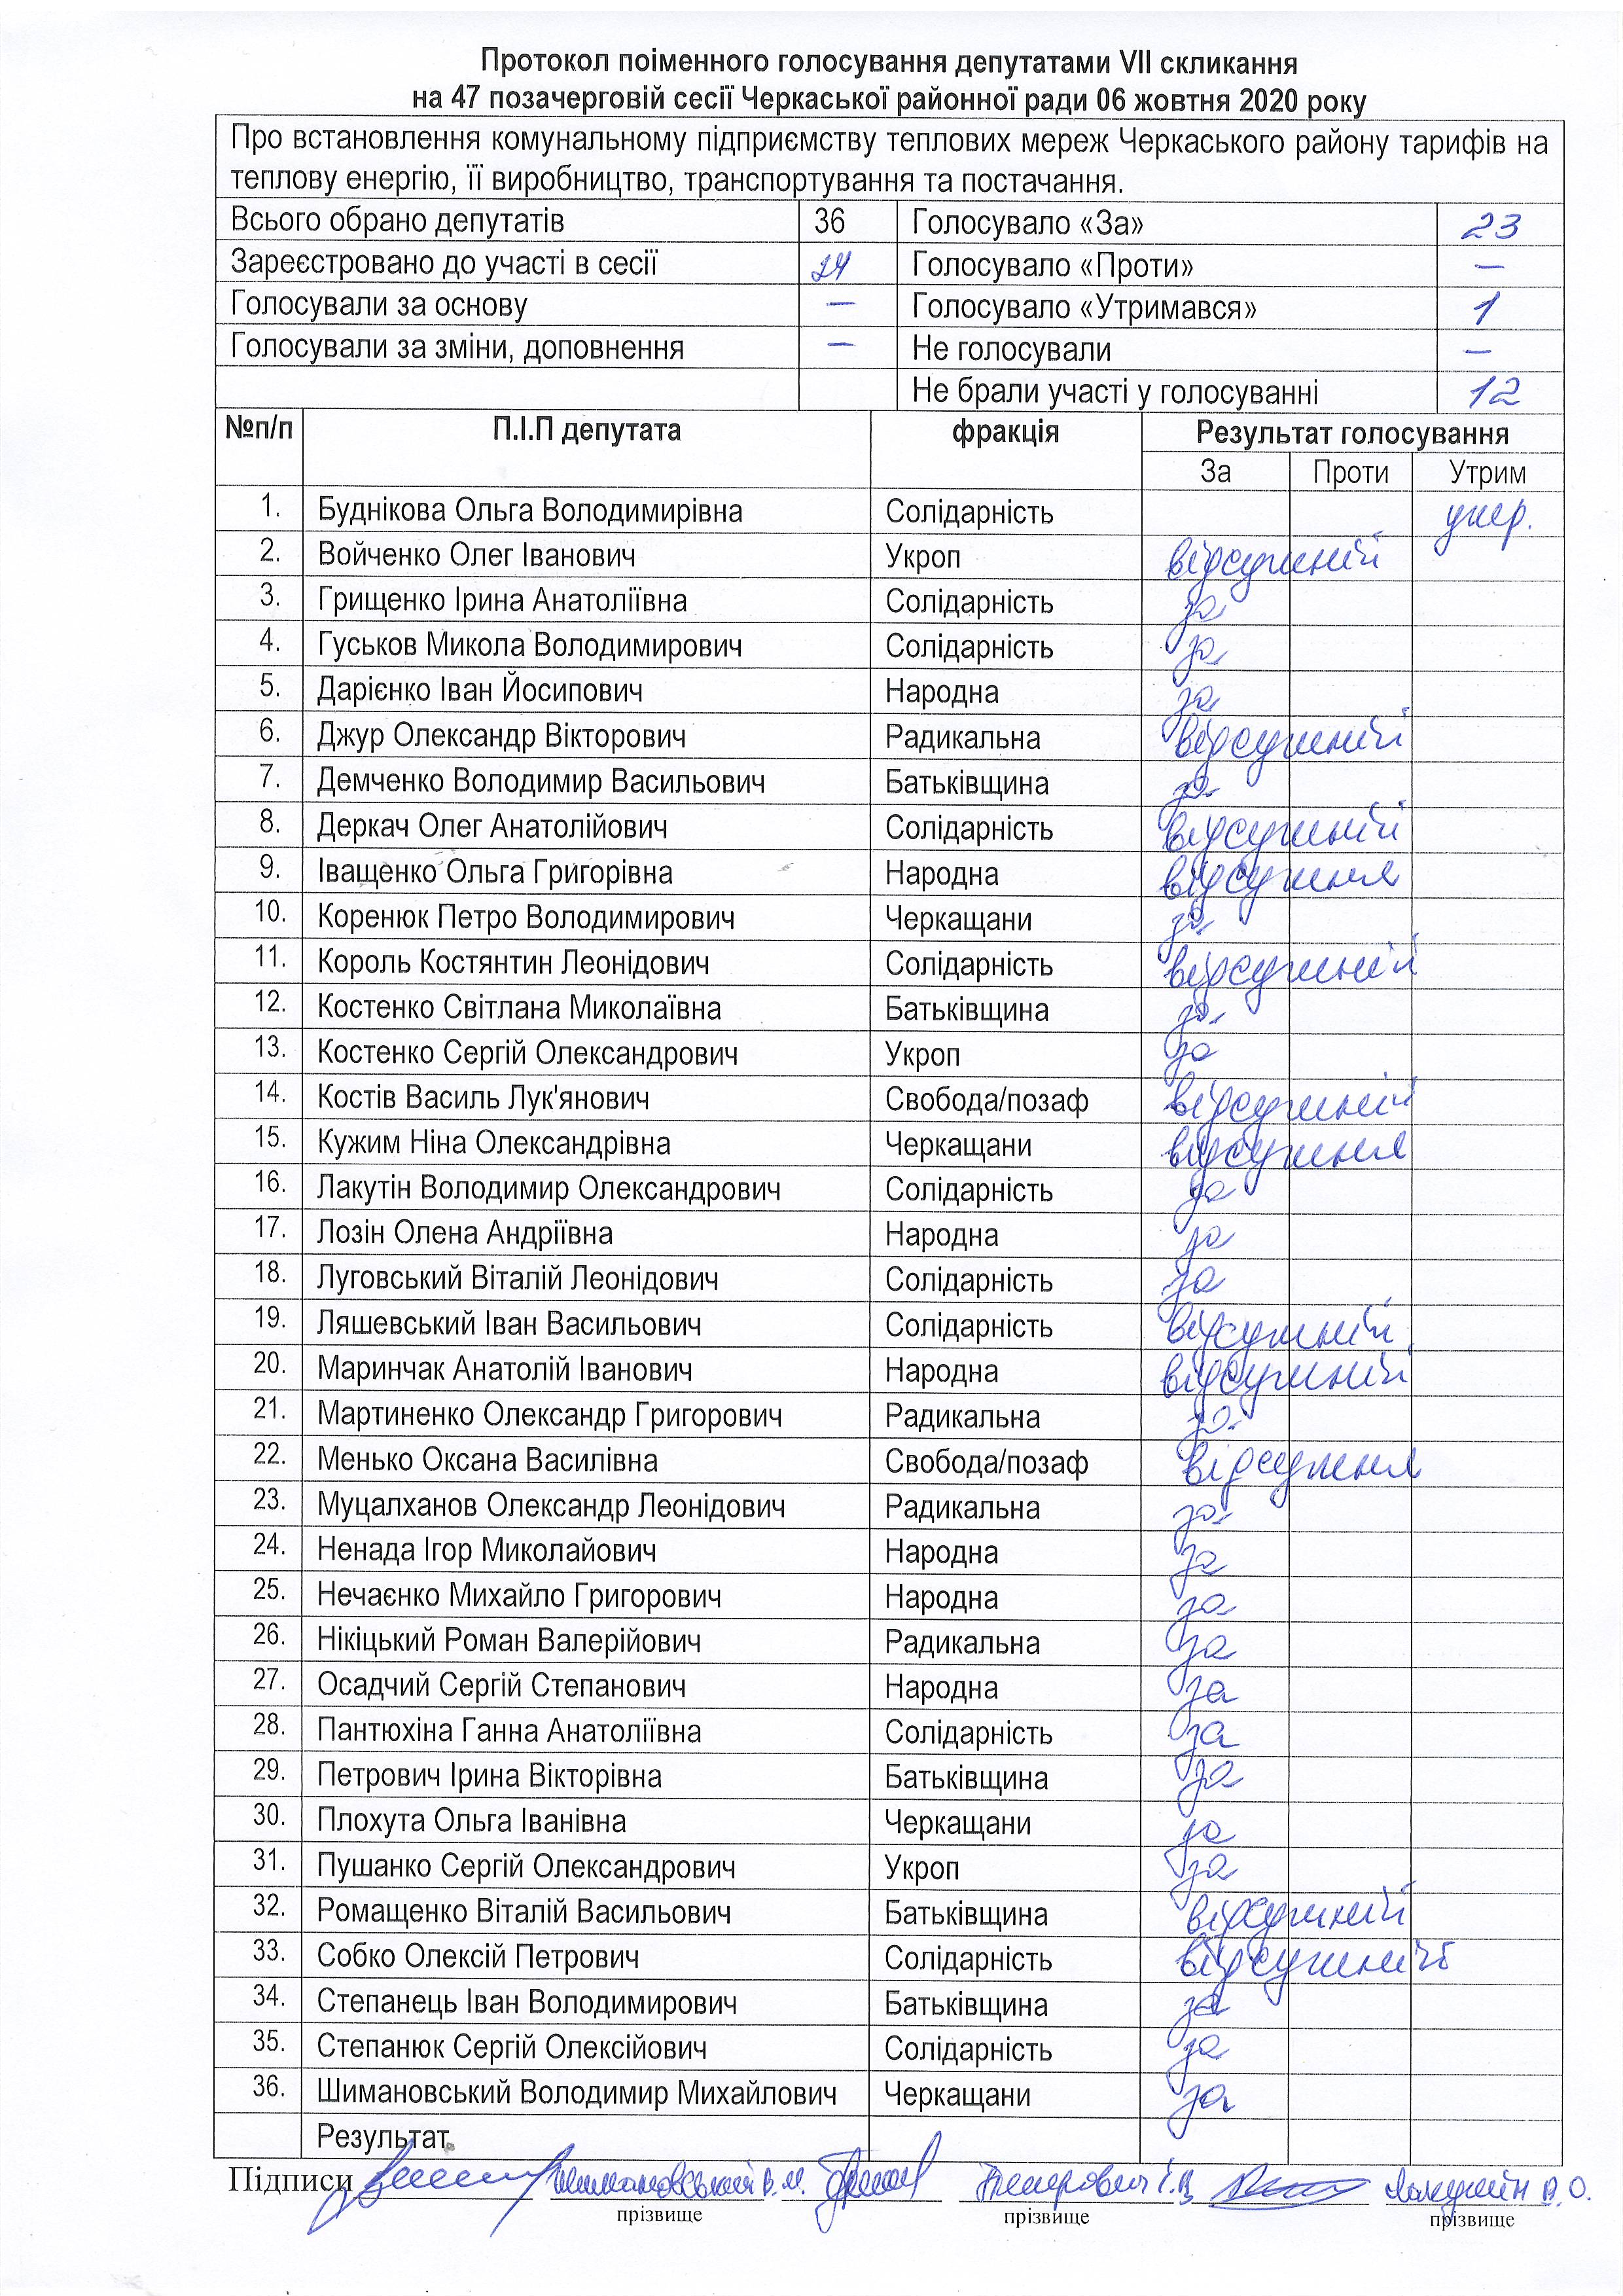 Протокол поіменного голосування депутатами VII скликання
на 47 позачерговій сесії Черкаської районної ради 06 жовтня 2020 року
Про встановлення комунальному підприємству теплових мереж Черкаського району тарифів на
теплову енергію, її виробництво, транспортування та постачання.
Всього обрано депутатів 36 Голосувало «За» 23
Зареєстровано до участі в сесії 24 Голосувало «Проти» —
Голосували за основу — Голосувало «Утримався» 1
Голосували за зміни, доповнення — Не голосували —
Не брали участі у голосуванні 12
№п/п П.І.П депутата фракція Результат голосування
За Проти Утрим
1. Буднікова Ольга Володимирівна Солідарність
2. Войченко Олег Іванович Укроп відсутній
3. Грищенко Ірина Анатоліївна Солідарність за
4. Гуськов Микола Володимирович Солідарність за
5. Дарієнко Іван Йосипович Народна за
6. Джур Олександр Вікторович Радикальна відсутній
7. Демченко Володимир Васильович Батьківщина за
8. Деркач Олег Анатолійович Солідарність відсутній
9. Іващенко Ольга Григорівна Народна відсутня
10. Коренюк Петро Володимирович Черкащани за
11. Король Костянтин Леонідович Солідарність відсутній
12. Костенко Світлана Миколаївна Батьківщина за
13. Костенко Сергій Олександрович Укроп за
14. Костів Василь Лук'янович Свобода/позаф відсутній
15. Кужим Ніна Олександрівна Черкащани відсутня
16. Лакутін Володимир Олександрович Солідарність за
17. Лозін Олена Андріївна Народна за
18. Луговський Віталій Леонідович Солідарність за
19. Ляшевський Іван Васильович Солідарність відсутній
20. Маринчак Анатолій Іванович Народна відсутній
21. Мартиненко Олександр Григорович Радикальна за
22. Менько Оксана Василівна Свобода/позаф відсутня
23. Муцалханов Олександр Леонідович Радикальна за
24. Ненада Ігор Миколайович Народна за
25. Нечаєнко Михайло Григорович Народна за
26. Нікіцький Роман Валерійович Радикальна за
27. Осадчий Сергій Степанович Народна за
28. Пантюхіна Ганна Анатоліївна Солідарність за
29. Петрович Ірина Вікторівна Батьківщина за
30. Плохута Ольга Іванівна Черкащани за
31. Пушанко Сергій Олександрович Укроп за
32. Ромащенко Віталій Васильович Батьківщина відсутній
33. Собко Олексій Петрович Солідарність відсутній
34. Степанець Іван Володимирович Батьківщина за
35. Степанюк Сергій Олексійович Солідарність за
36. Шимановський Володимир Михайлович Черкащани за
Результат
Підписи Шимановський В.М. Петрович І.В. Лакутін В.О.
прізвище прізвище прізвище